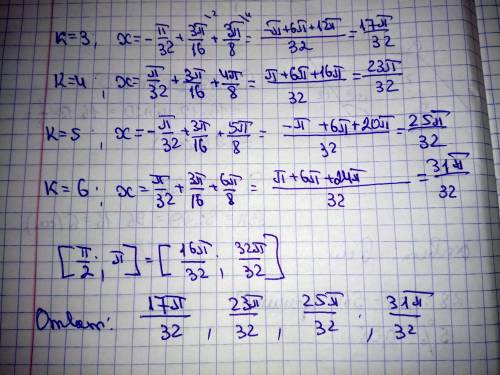 K=3, x=-π/32+3π/16+3π/8=(-π+6π+12π)/32=17π/32
K=4; x=π/32+3π/16+4π/8=(π+6π+16π)/32=23π/32
K=5, x=-π/32+3π/16+5π/8=(-π+6π+20π)/32=25π/32
K=6; x=π/32+3π/16+6π/8=(π+6π+24π)/32=31π/32
[π/2; π]=[16π/32; 32π/32]
Ответ: 17π/32, 23π/32, 25π/32; 31π/32